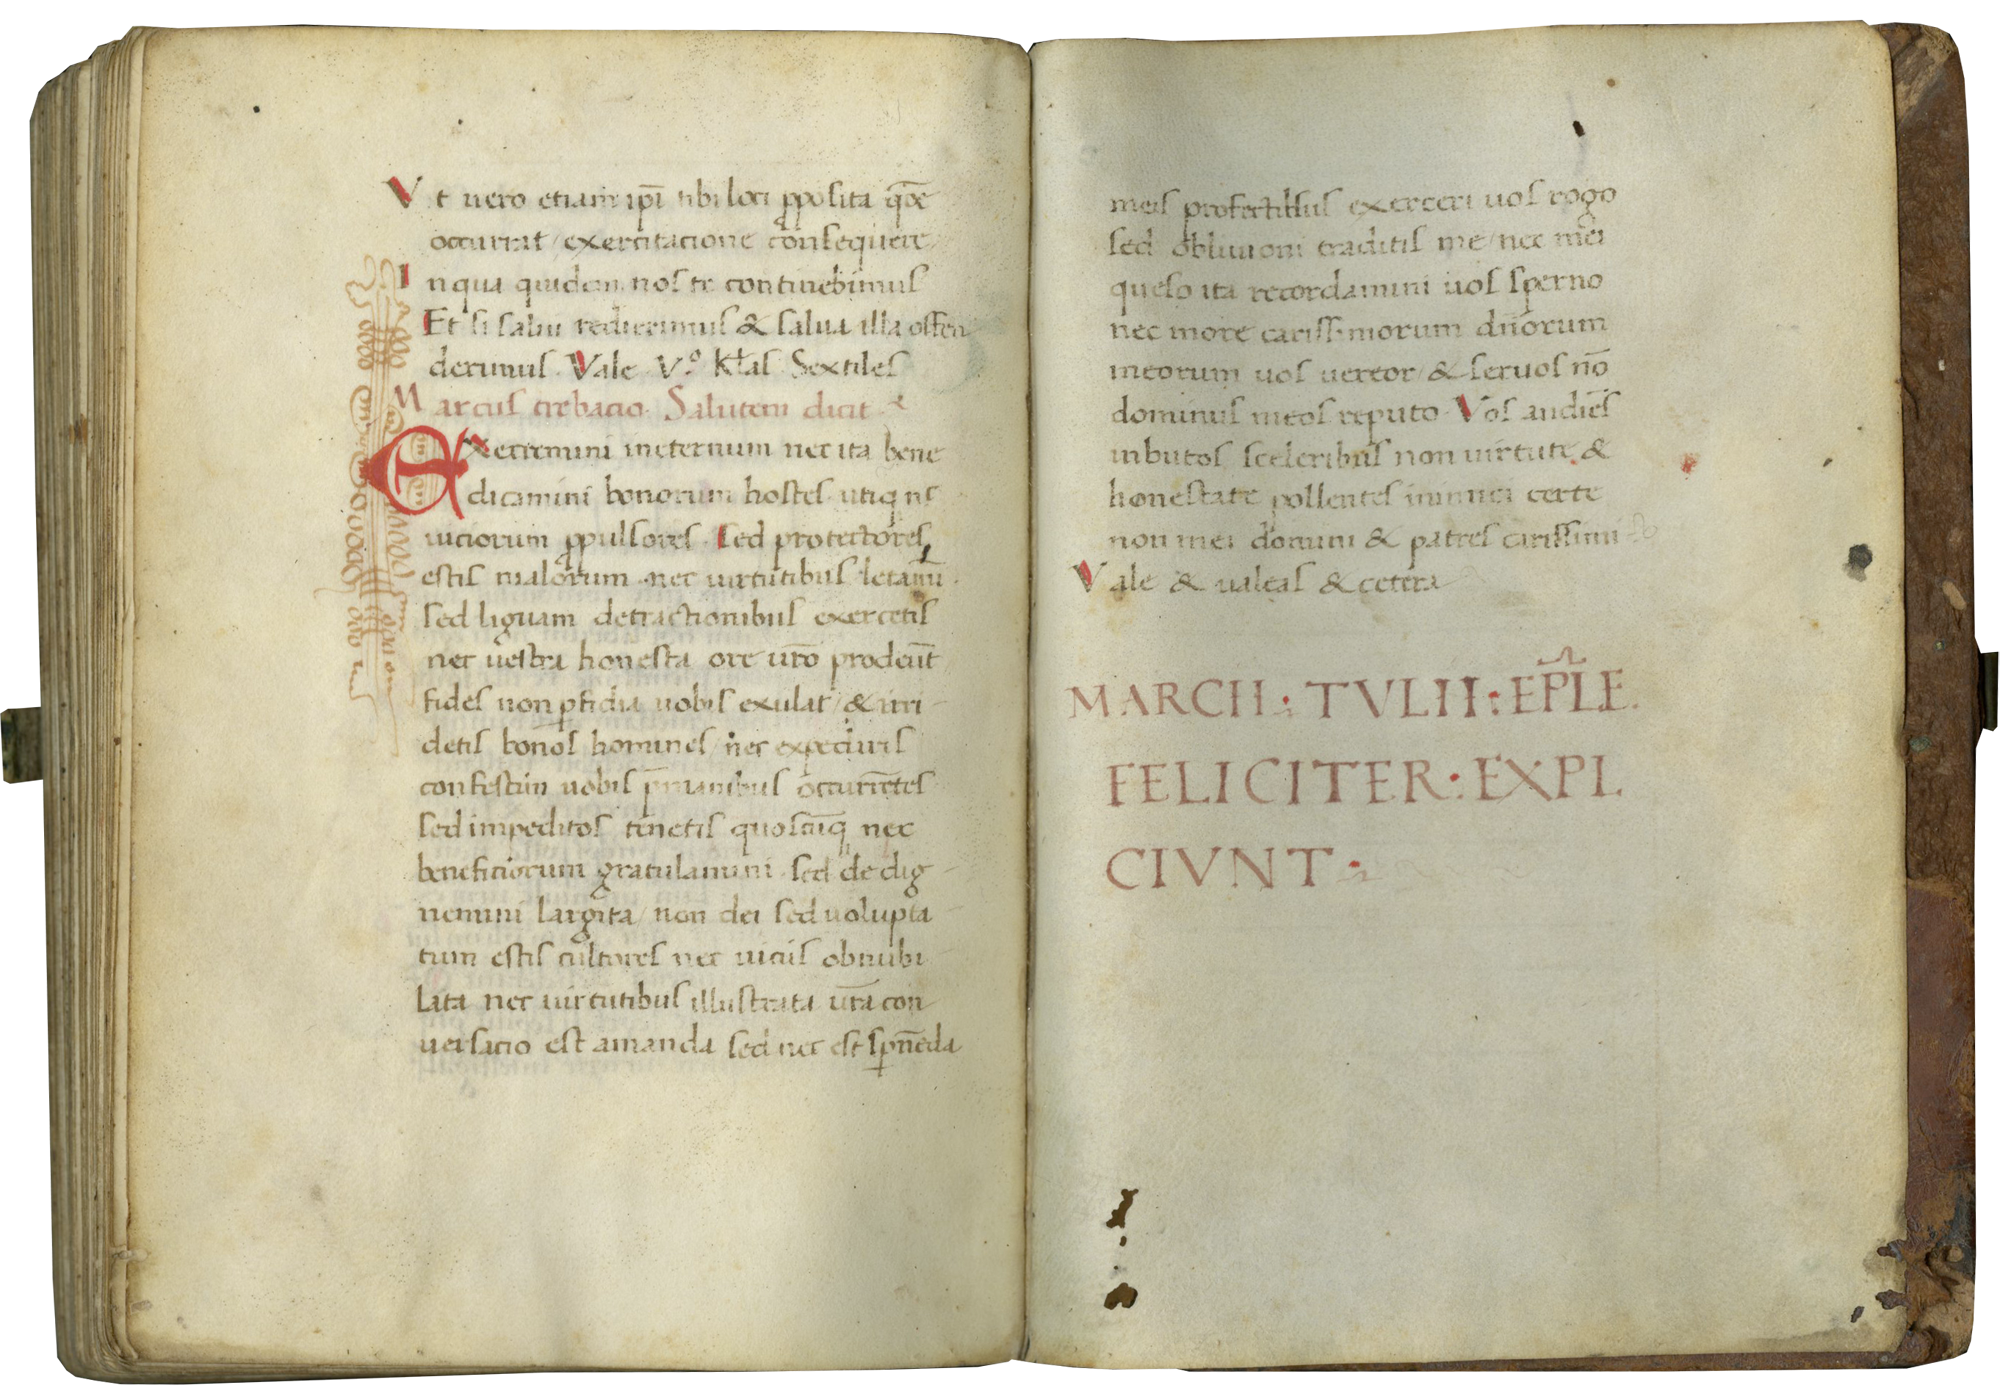 Vt uero etiam ip̄i tibi loci ꝓposita q̄õe
occurrat / exercitacione consequere
Inqua quidem nos te continebimus
Et si salui redierimus & salua illa offen
derimus. Vale. V.º Kłas Sextiles
Marcus trebacio. Salutem dicit &
Exterremini ineternum nec ita bene
dicamini bonorum hostes utiq ne
uiciorum ꝓpulsores. Sed protectores
estis malorum. nec uirtutibus letamī.
sed liguam detractionibus exercetis
nec uestra honesta ore ur̄o prodeūt
fides non ꝑfidia uobis exulat / & irri
detis bonos homines / nec expeditis
confestim uobis p̄manibus occurrētes
sed impeditos tenetis quoscūq nec
beneficiorum gratulamini sed dedig
nemini largita / non dei sed uolupta
tum estis cultores nec uiciis obnubi
lata nec uirtutibus illustrata ur̄a con
uersacio est amanda sed nec est spn̄eda
meis profectibus exerceri uos rogo
sed obliuioni traditis me / nec mei
queso ita recordamini uos sperno
nec more carissimorum dn̄orum
meorum uos uereor / & seruos nō
dominus meos reputo. Vos audies
inbutos sceleribus non uirtute &
honestate pollentes inimici certe
non mei domini & patres carissimi
Vale & ualeas & cetera
MARCII : TVLII : EP̄LE.
FELICITER : EXPL
CIVNT :